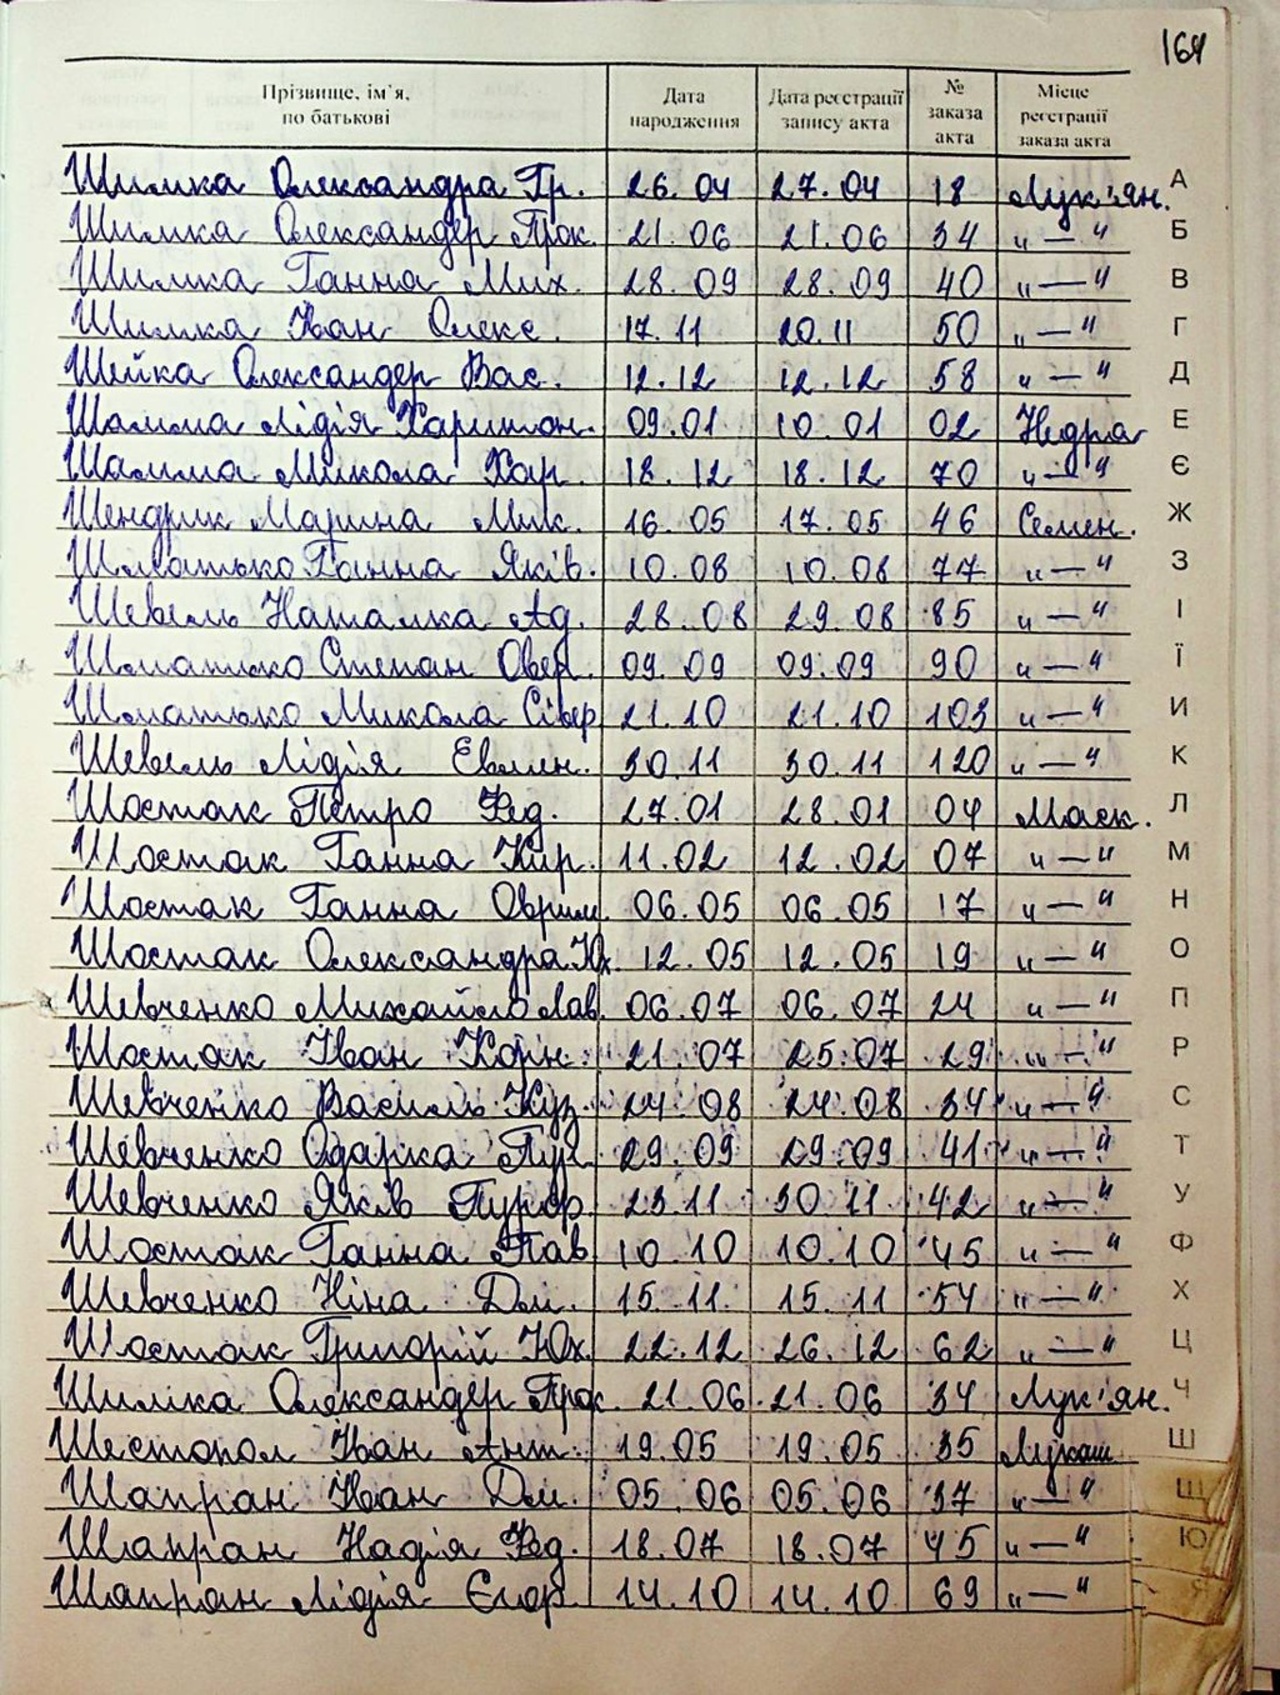 164
Прізвище, ім'я, по батькові Дата народження Дата реєстрації запису акта № заказа акта Місце реєстрації заказа акта
Шимка Олександра Гр. 26.04 27.04 18 Лук'ян. А
Шимка Олександер Прок. 21.06 21.06 34 „—“ Б
Шимка Ганна Мих. 28.09 28.09 40 „—“ В
Шимка Іван Олекс. 17.11 20.11 50 „—“ Г
Шейка Олександер Вас. 12.12 12.12 58 „—“ Д
Шамша Лідія Харитон. 09.01 10.01 02 Недра Е
Шамша Микола Хар. 18.12 18.12 70 „—“ Є
Шендрик Марина Мик. 16.05 17.05 46 Семен. Ж
Шматько Ганна Яків. 10.08 10.08 77 „—“ З
Шевель Наталка Ад. 28.08 29.08 85 „—“ І
Шматько Степан Овер. 09.09 09.09 90 „—“ Ї
Шматько Микола Сівер 21.10 21.10 103 „—“ И
Шевель Лідія Евмен. 30.11 30.11 120 „—“ К
Шостак Петро Фед. 27.01 28.01 04 Маск. Л
Шостак Ганна Кир. 11.02 12.02 07 „—“ М
Шостак Ганна Оврим. 06.05 06.05 17 „—“ Н
Шостак Олександра Юх. 12.05 12.05 19 „—“ О
Шевченко Михайло Лав. 06.07 06.07 24 „—“ П
Шостак Іван Корн. 21.07 25.07 29 „—“ Р
Шевченко Василь Куз. 24.08 24.08 34 „—“ С
Шевченко Одарка 29.09 29.09 41 „—“ Т
Шевченко Яків 23.11 30.11 42 „—“ У
Шостак Ганна Пав. 10.10 10.10 45 „—“ Ф
Шевченко Ніна Дм. 15.11. 15.11 54 „—“ Х
Шостак Григорій Юх. 22.12 26.12 62 „—“ Ц
Шимка Олександер Прок. 21.06 21.06 34 Лук'ян. Ч
Шестопол Іван Ант. 19.05 19.05 35 Лукаш Ш
Шапран Іван Дм. 05.06 05.06 37 „—“ Щ
Шапран Надія Фед. 18.07 18.07 45 „—“ Ю
Шапран Лідія Єгор. 14.10 14.10 69 „—“ Я